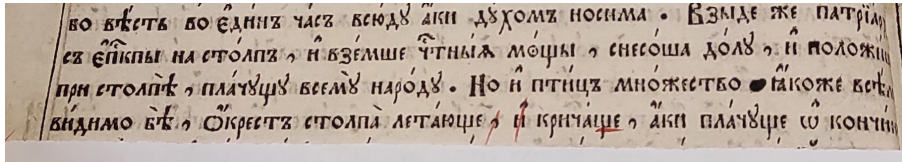 во вѣ́сть во є҆ди́нъ ча́съ всю́ду а҆́ки дꙋ́хомъ носи́ма . Взы́де же патрїа́р
съ є҆пⷭ҇кпы на сто́лпъ , и҆ взе́мше чⷭ҇тны́ѧ мо́щы , снесо́ша до́лꙋ , и҆ положи́
при столпѣ̀ , пла́чꙋщꙋ всемꙋ̀ наро́дꙋ . Но и҆ пти́цъ мно́жество ꙗ҆́коже всѣ́
ви́димо бѣ̀ , ѻ҆́крестъ столпа̀ лета́юще , и҆ крича́ще , а҆́ки пла́чꙋще ѡ҆ кончи́